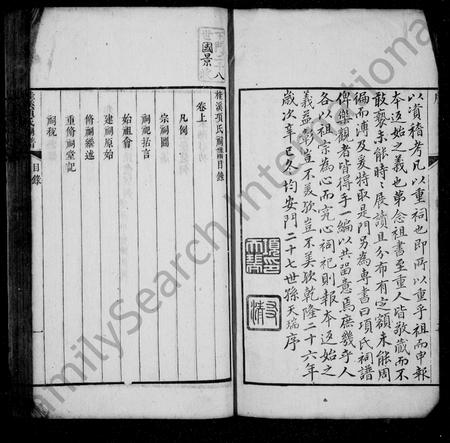 以資稽考凡以重祠也即所以重乎祖而申報
本返始之義也第念祖書至重人皆敬藏而不
敢褻未能時々展讀且分布有定額未能周
徧而溥及爰特取是門另為專書曰項氏祠譜
俾樂觀者皆得手一編以共留意焉庶幾乎人
各以祖宗為心而究心祠祀則報本返始之
義益彰豈不美歟豈不美歟乾隆二十六年
歲次辛巳冬均安門二十七世孫天瑞序
桂溪項氏祠譜目錄
卷上
凡例
宗祠圖
祠規拈言
始祖會
建祠原始
脩祠繼述
重脩祠堂記
祠稅
目錄
國景
八
FamilySearch International